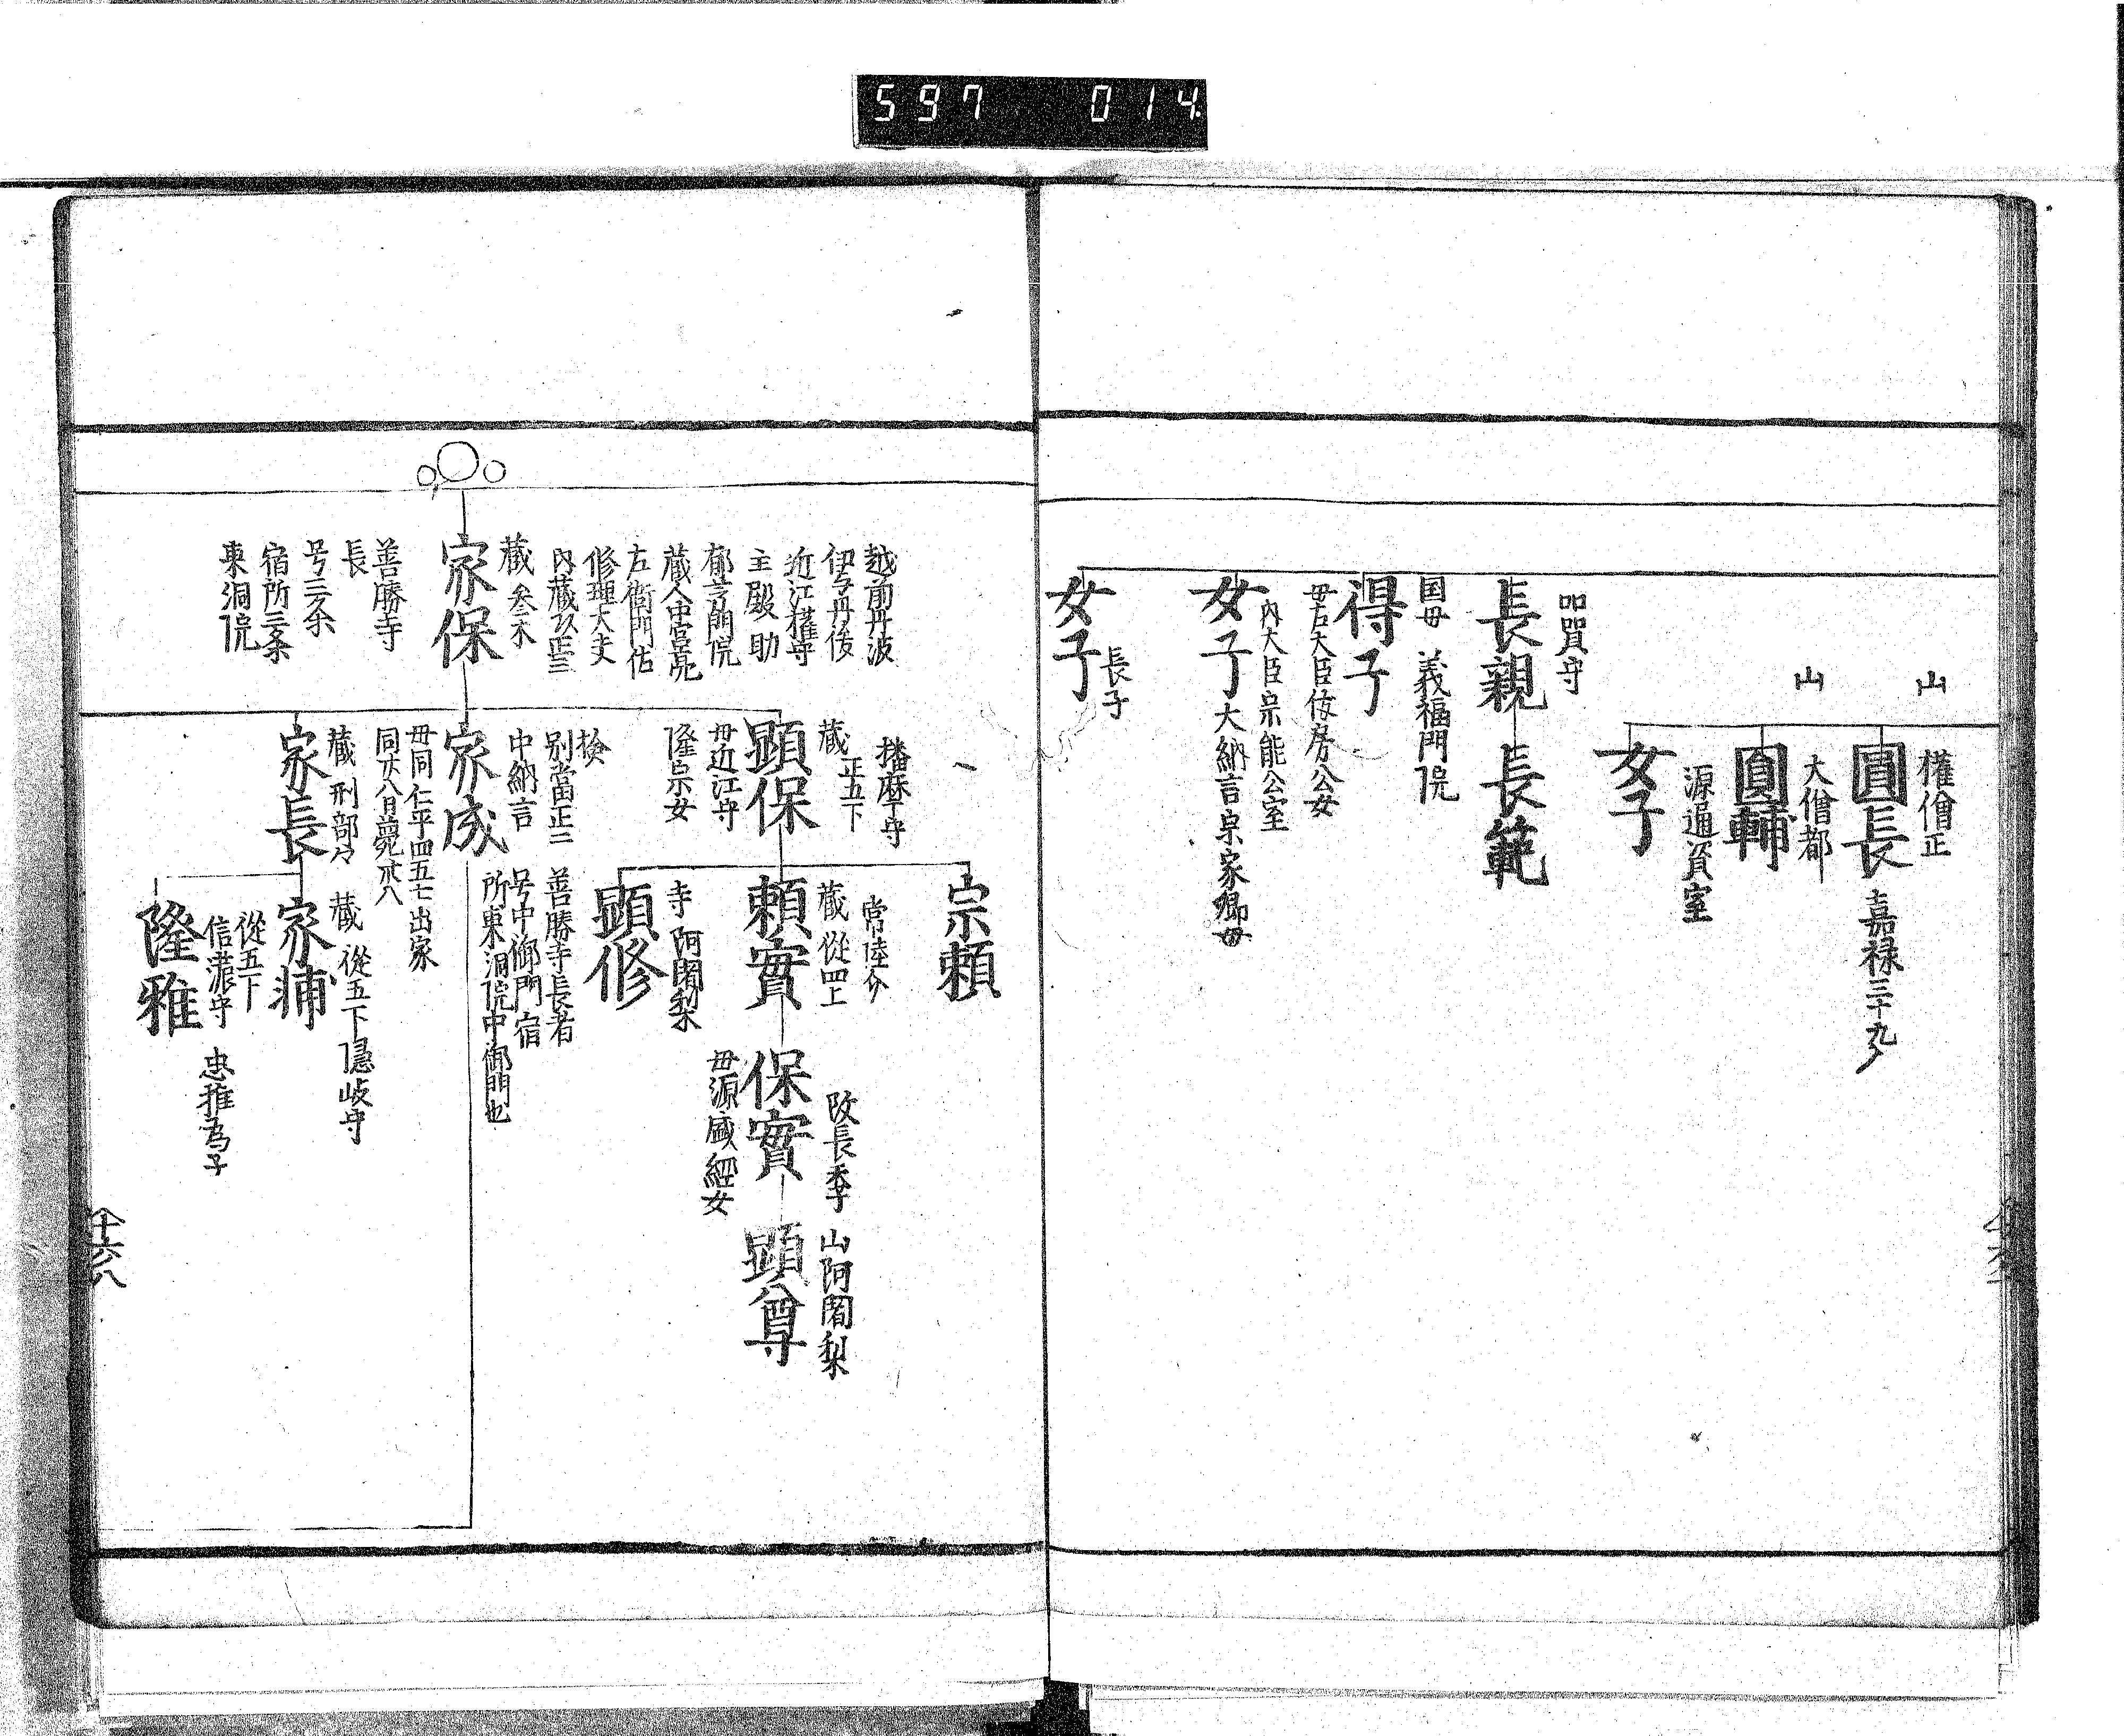 597 014
山
權僧正
圓長
嘉禄三十九
山
大僧都
圓輔
源通資室
女子
長親
長範
国母 美福門院
得子
母左大臣俊房公女
内大臣宗能公室
女子
大納言宗家卿母
長子
女子
越前丹波
伊与丹後
近江權守
主殿助
郁芳門院
蔵人中宮亮
左衛門佐
修理大夫
内蔵頭正三
蔵 参木
家保
善勝寺
長
号三条
宿所三条
東洞院
播麻守
蔵 正五下
顕保
母近江守
隆宗女
宗頼
常陸介
蔵 従四上
頼實
寺 阿闍梨
顕修
改長季
保實
母源盛經女
山阿闍梨
顕尊
検
別當正二
中納言
善勝寺長者
号中御門宿
所東洞院中御門也
家成
母同 仁平四五七出家
蔵 刑部
家長
蔵 従五下隠岐守
家輔
従五下
信濃守 忠雅為子
隆雅